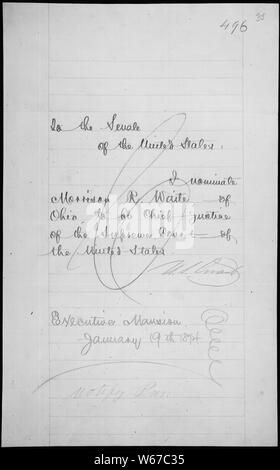 35
496
To the Senate
of the United States.
I nominate
Morrison R. Waite of
Ohio to be Chief Justice
of the Supreme Court of
the United States
U.S. Grant
Executive Mansion
January 19th 1874
Notify
alamy
Image ID: W67C35
www.alamy.com